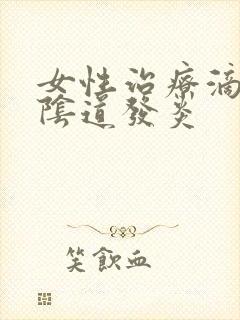 女性治療滴
陰道發炎
笑飲血